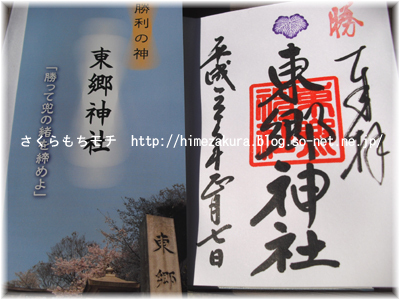 勝利の神
東郷神社
「勝って兜の緒を締めよ」
東郷
勝
奉拝
東郷神社
さくらもちモチ http://himezakura.blog.so-net.ne.jp/